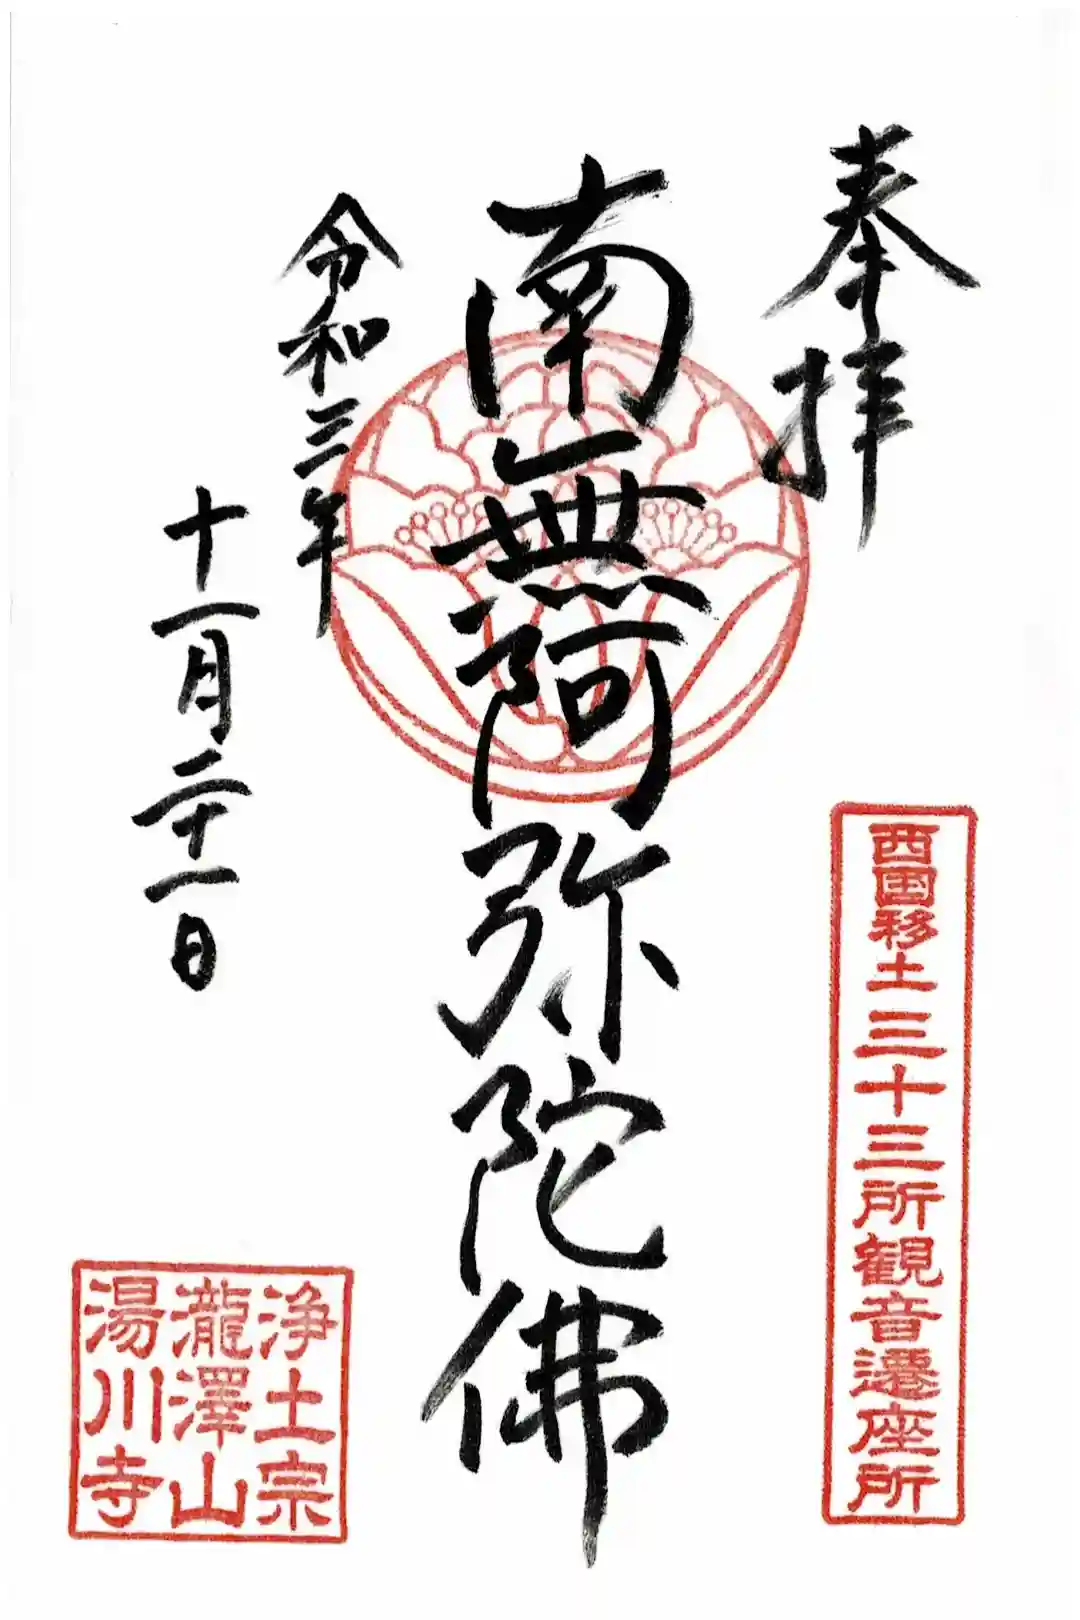 奉拝
西国移土三十三所観音遷座所
南無阿弥陀佛
令和三年
十一月二十一日
浄土宗
瀧澤山
湯川寺